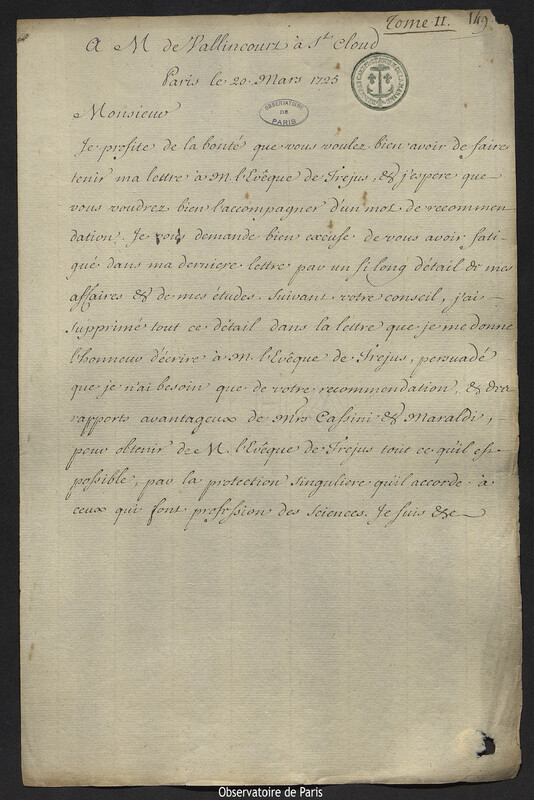 Tome II. 149
A M de Vallincourt à St Cloud
Paris le 20 Mars 1725
OBSERVATOIRE
DE
PARIS
Monsieur
Je profite de la bonté que vous voulez bien avoir de faire
tenir ma lettre à M. l'Evêque de Frejus, & j'espere que
vous voudrez bien l'accompagner d'un mot de recommen
dation. Je vous demande bien excuse de vous avoir fati-
gué dans ma derniere lettre par un si long détail de mes
affaires & de mes études. Suivant votre conseil, j'ai
supprimé tout ce détail dans la lettre que je me donne
l'honneur d'écrire à M. l'Evêque de Frejus, persuadé
que je n'ai besoin que de votre recommendation, & des
rapports avantageux de Mrs Cassini & Maraldi,
pour obtenir de M. l'Evêque de Frejus tout ce qu'il est
possible, par la protection singuliere qu'il accorde à
ceux qui font profession des sciences. Je suis &c
Observatoire de Paris